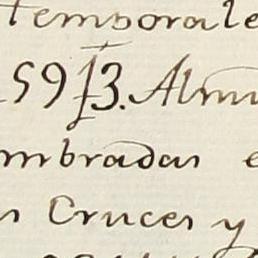 temporale
59ƒ3. Alm
mbradas e
s Cruces y